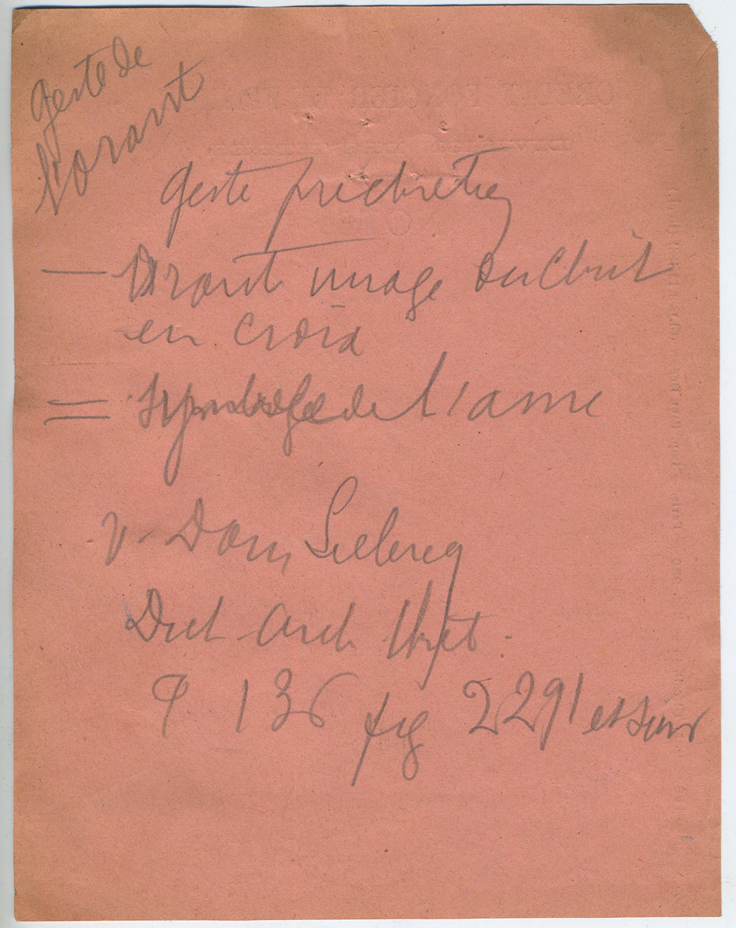 geste de
l'orant
geste prechretien
— Orant image du Christ
en croix
= symbole de l'ame
v. Dom Leclercq
Dict Arch Chret.
P. 136 fig 2291 et suiv